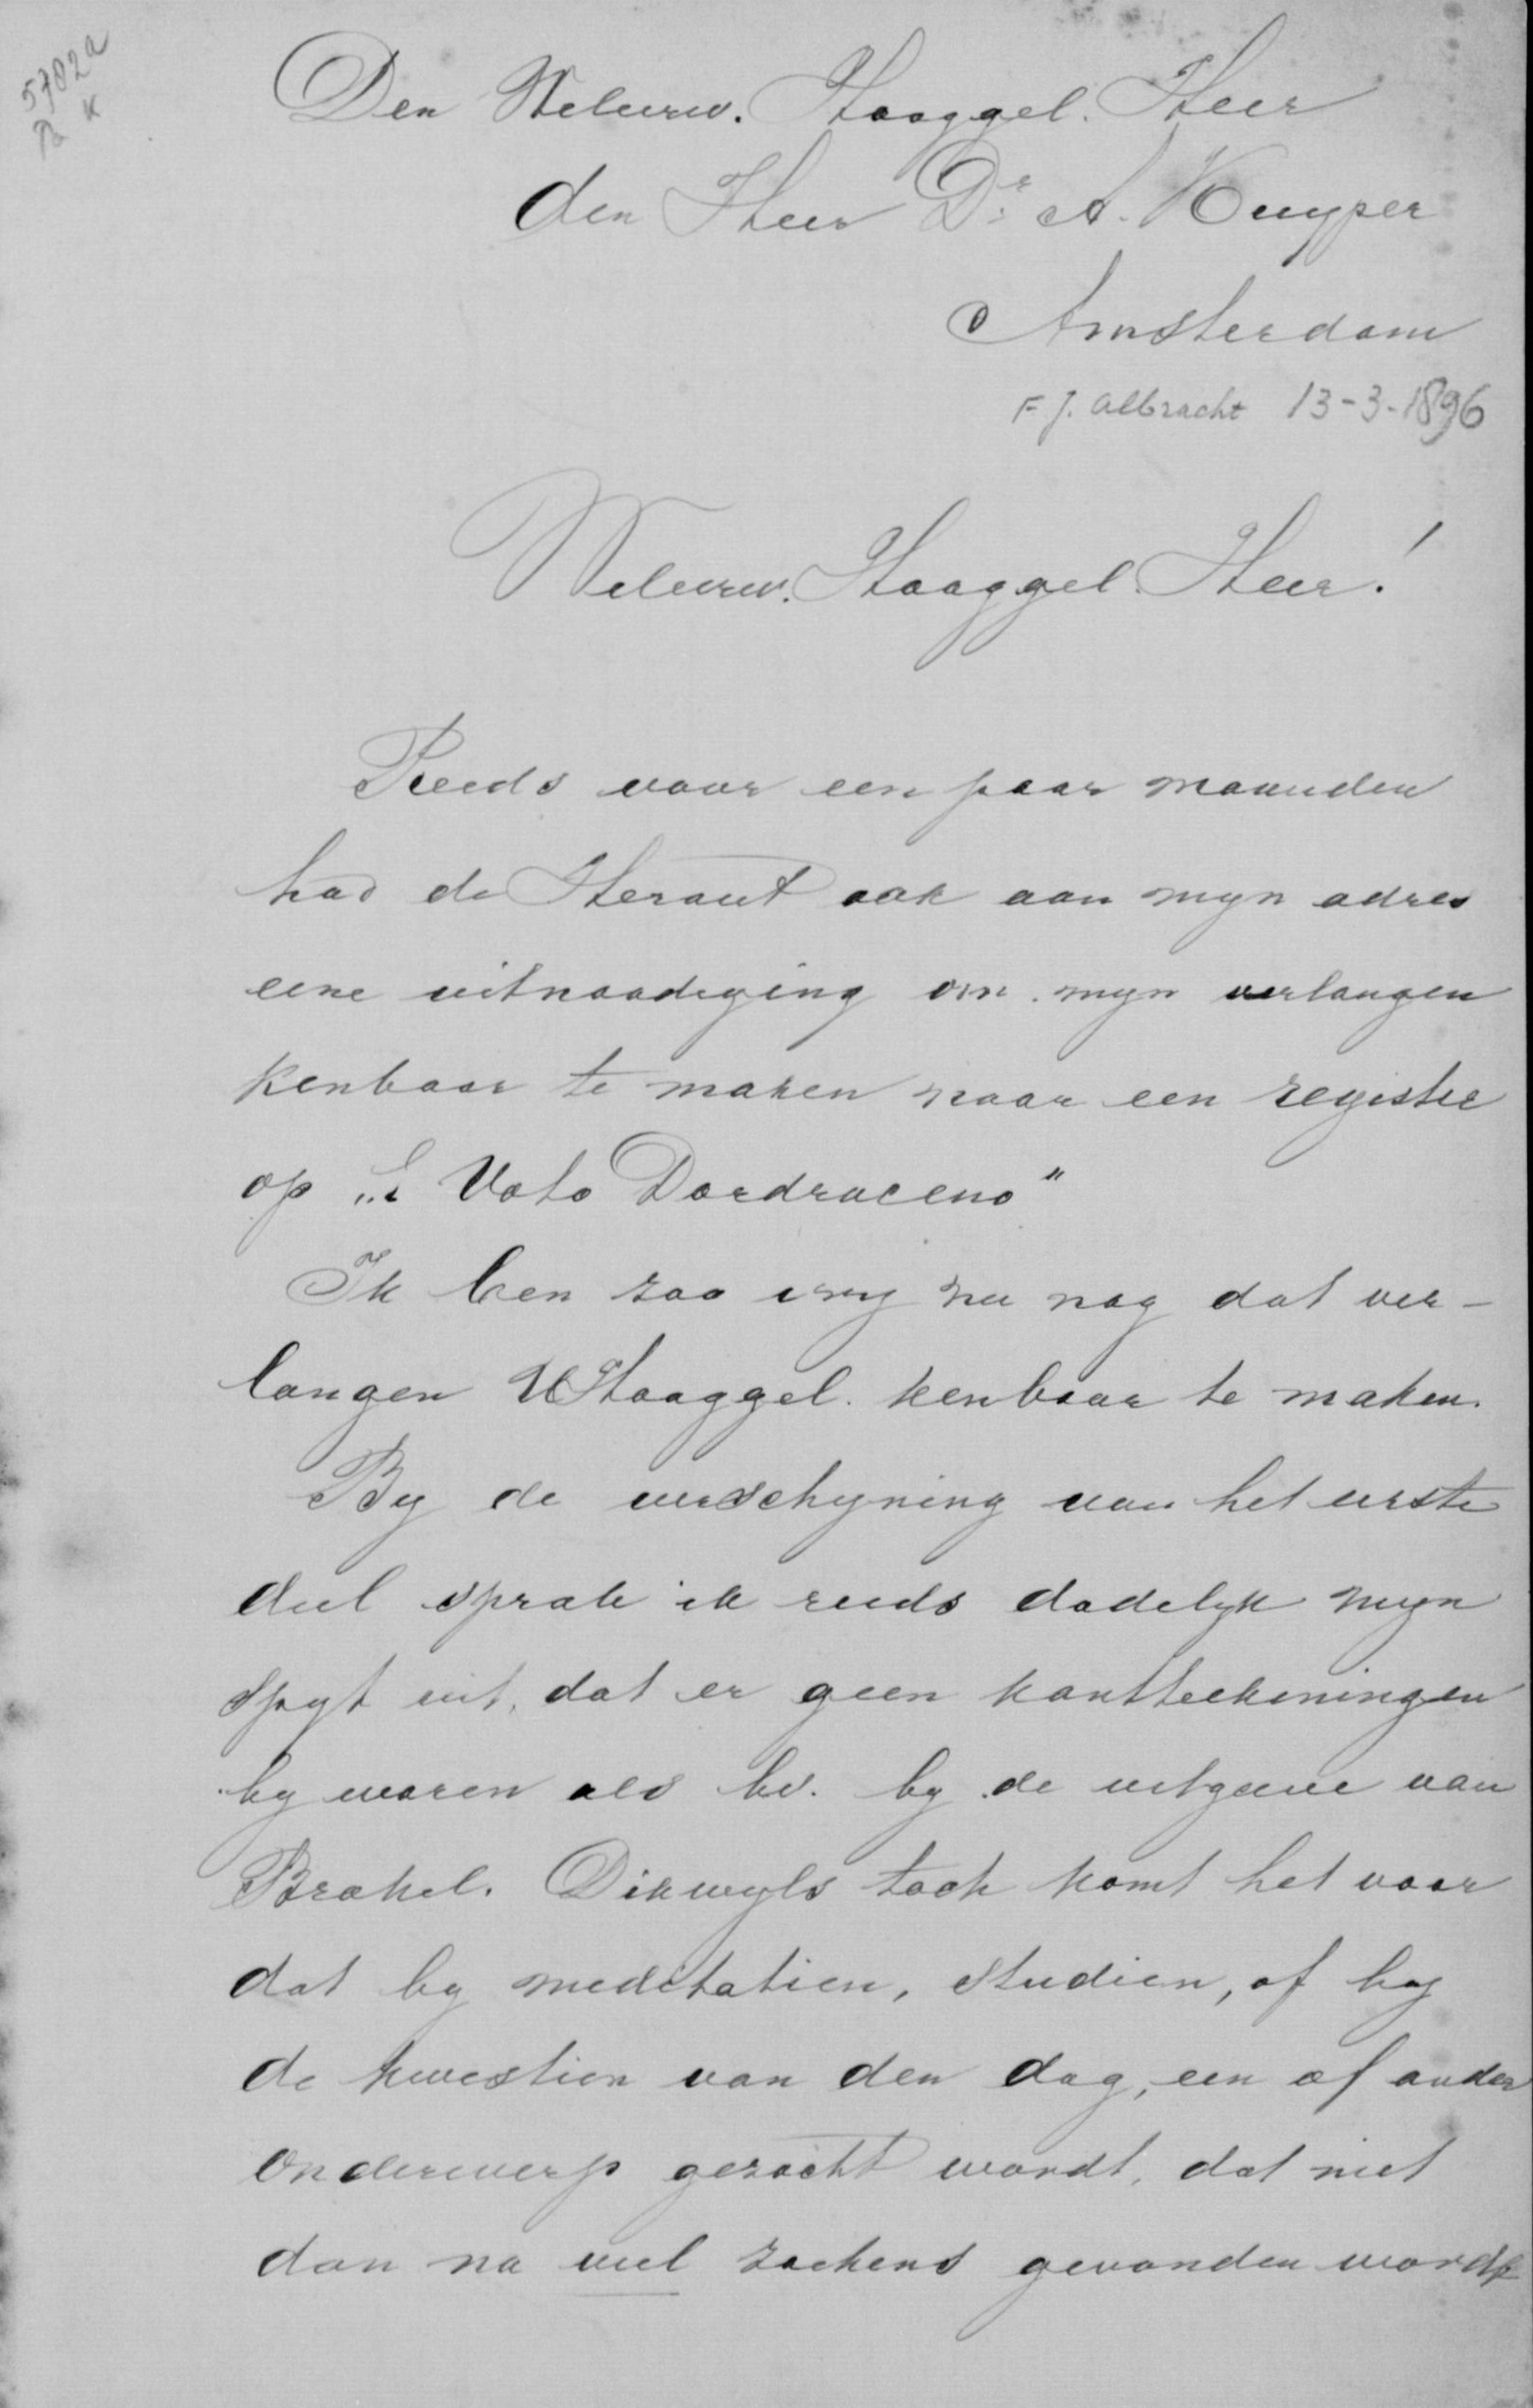 5702a
K
Den Weleerw. Hooggel. Heer
den Heer Dr. A. Kuyper
Amsterdam
F J. Albracht 13-3-1896
Weleerw. Hooggel. Heer!
Reeds voor een paar maanden
had de Heraut ook aan mijn adres
eene uitnoodiging om mijn verlangen
kenbaar te maken naar een register
op „E Voto Dordraceno"
Ik ben zoo vrij nu nog dat ver-
langen UHooggel. kenbaar te maken.
Bij de verschijning van het eerste
deel sprak ik reeds dadelijk mijn
spijt uit, dat er geen kantteekeningen
bij waren als bv. bij de uitgave van
Brakel. Dikwijls toch komt het voor
dat bij meditatien, studien, of bij
de kwestien van den dag, een of ander
onderwerp gezocht wordt, dat niet
dan na veel zoekens gevonden wordt